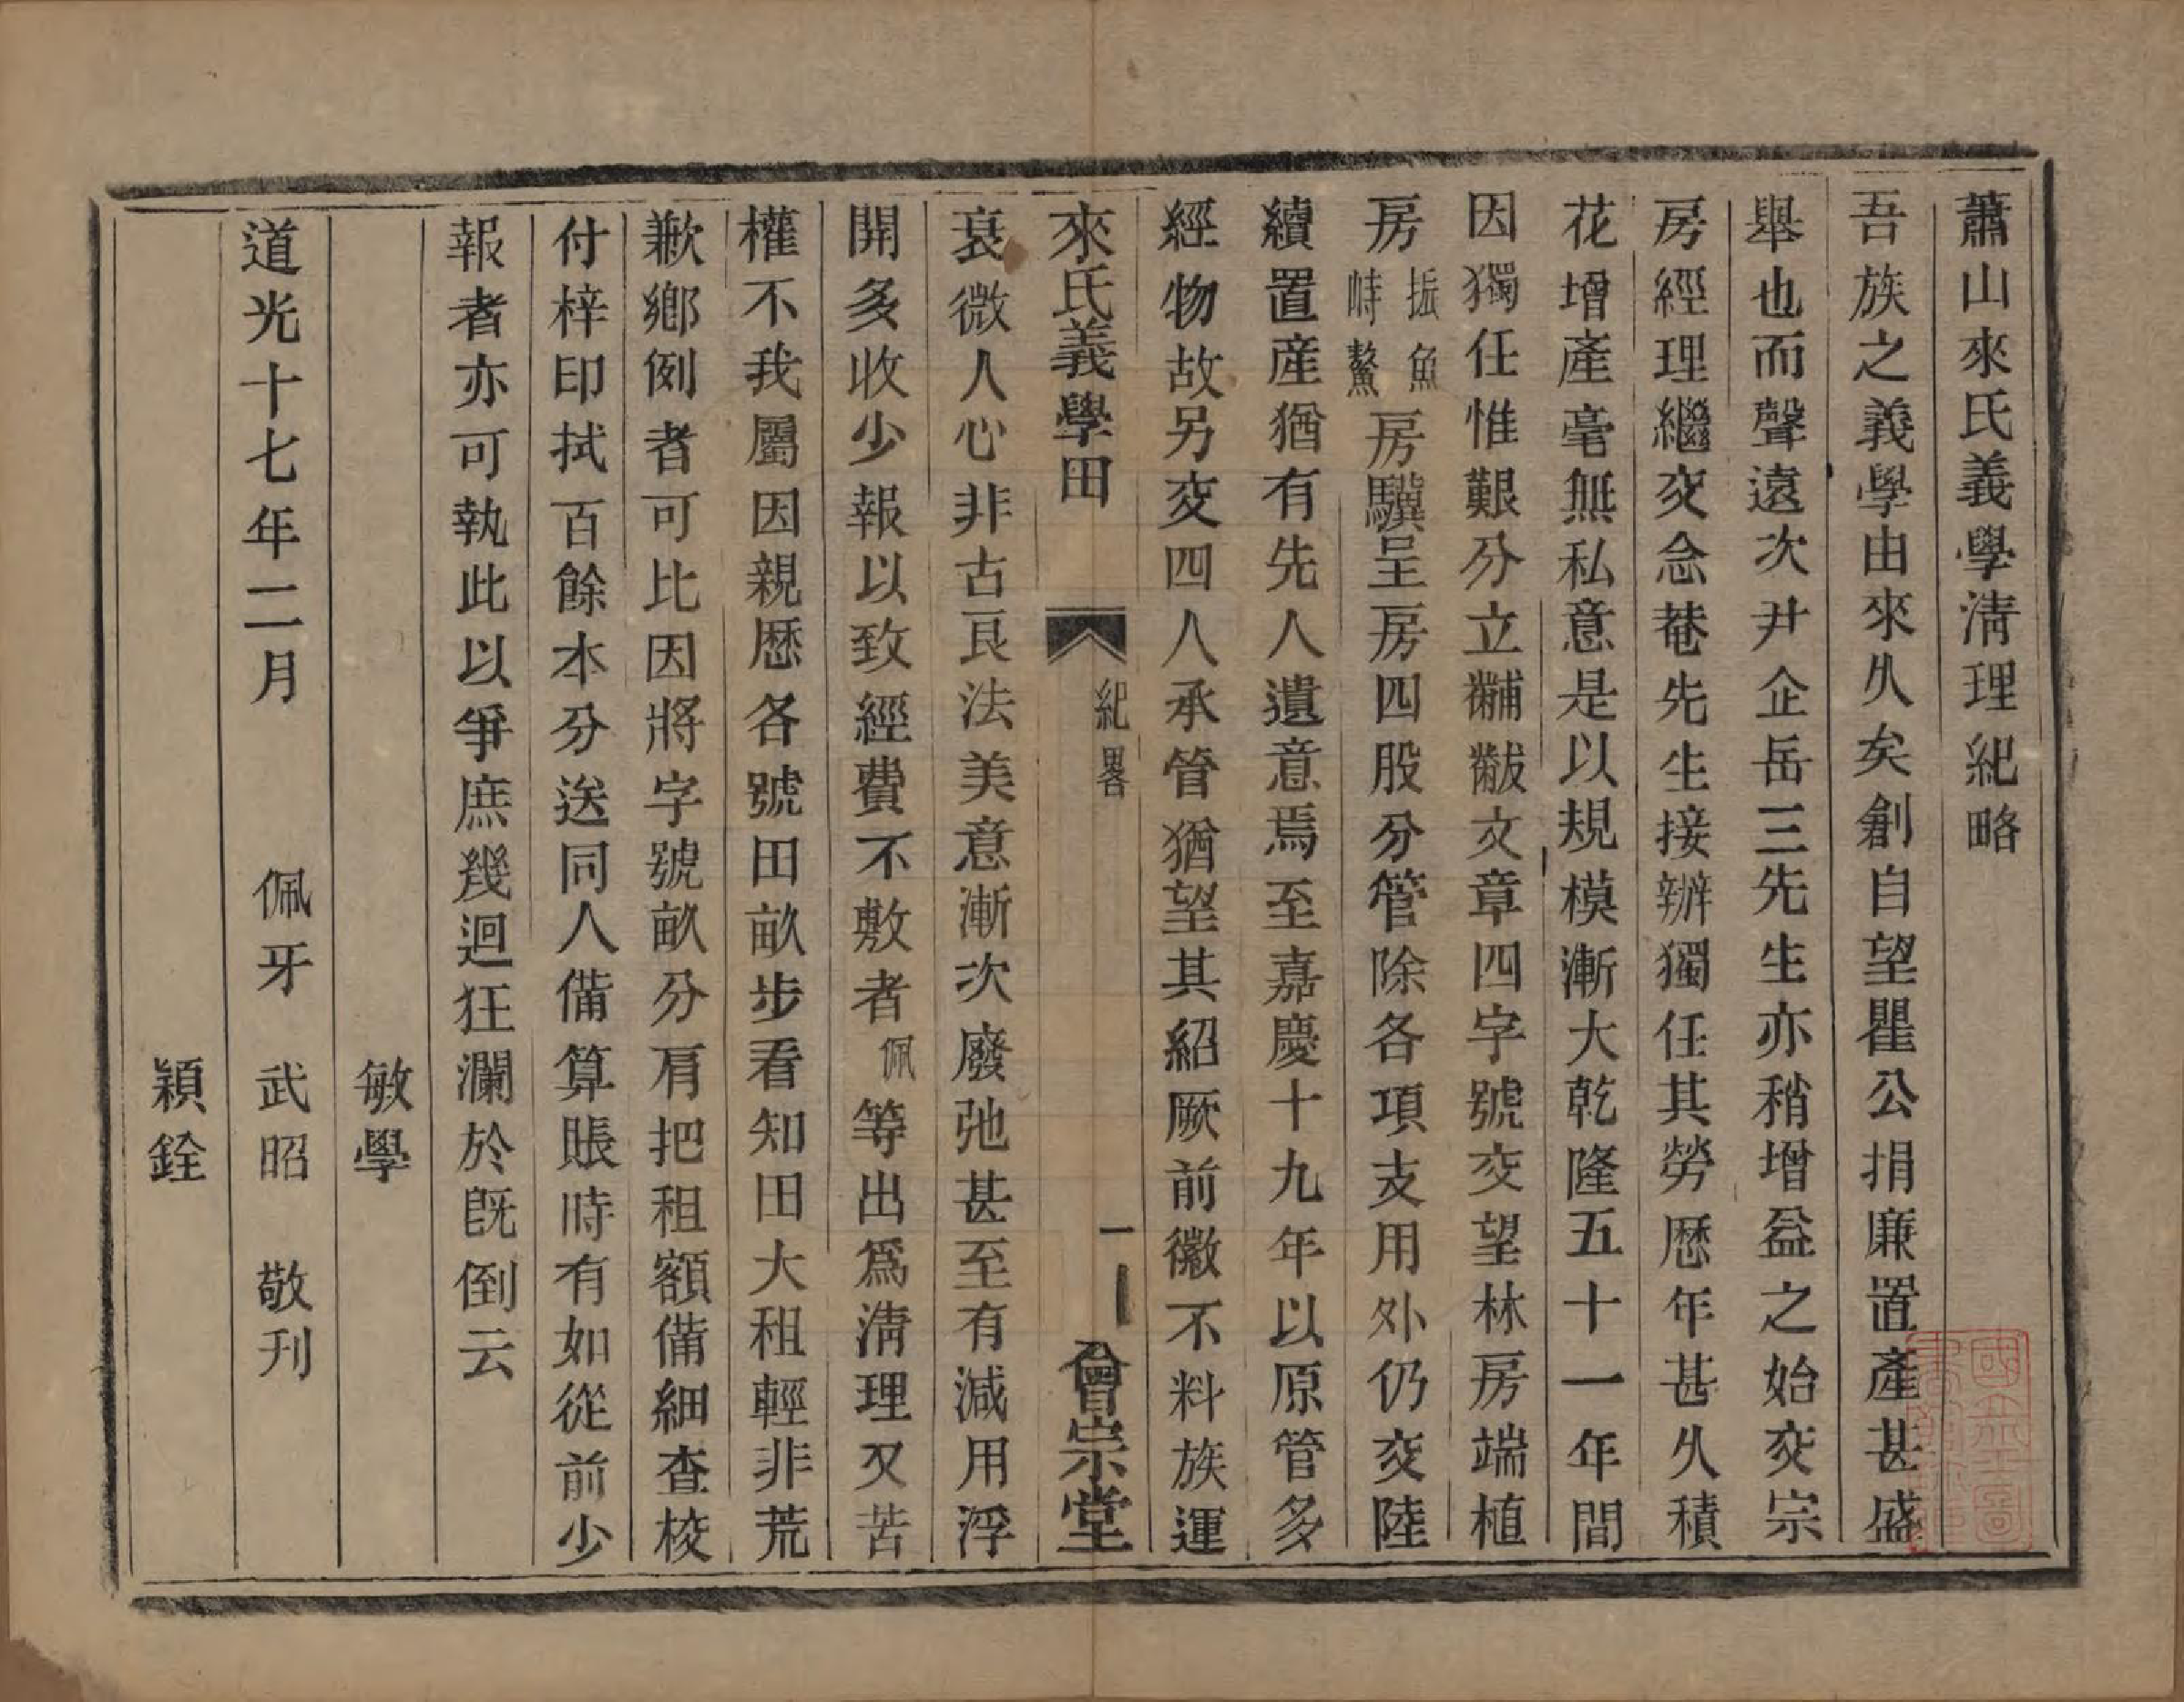 蕭山來氏義學清理紀略
吾族之義學由來久矣創自望瞿公捐廉置產甚盛
舉也而聲遠次尹企岳三先生亦稍增益之始交宗
房經理繼交念菴先生接辦獨任其勞歷年甚久積
花增產毫無私意是以規模漸大乾隆五十一年間
因獨任惟艱分立黼黻文章四字號交望林房端植
房振魚峙鰲房驥呈房四股分管除各項支用外仍交陸
續置產猶有先人遺意焉至嘉慶十九年以原管多
經物故另交四人承管猶望其紹厥前徽不料族運
來氏義學田 紀畧 一 會宗堂
衰微人心非古良法美意漸次廢弛甚至有減用浮
開多收少報以致經費不敷者佩等出爲淸理又苦
權不我屬因親歷各號田畝步看知田大租輕非荒
歉鄉例者可比因將字號畝分肩把租額備細查校
付梓印拭百餘本分送同人備算賬時有如從前少
報者亦可執此以爭庶幾迴狂瀾於旣倒云
敏學
道光十七年二月 佩牙 武昭 敬刊
穎銓